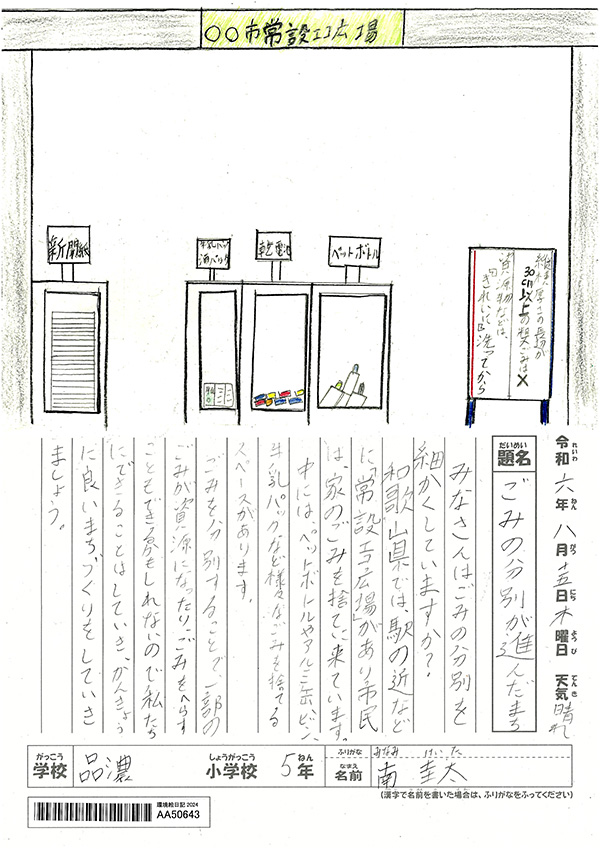 〇〇市常設エコ広場
新聞紙
牛乳パック
酒パック
乾電池
ペットボトル
30cm以上の粗ごみは×
資源物などは、
きれいに洗ってから
令和六年八月十五日木曜日 天気 晴れ
れいわ ねん がつ にち ようび てんき
だいめい
題名 ごみの分別が進んだまち
みなさんはごみの分別を
細かくしていますか？
和歌山県では、駅の近など
に「常設エコ広場」があり市民
は、家のごみを捨てに来ています。
中には、ペットボトルやアルミ缶、ビン、
牛乳パックなど様々なごみを捨てる
スペースがあります。
ごみを分別することで一部の
ごみが資源になったり、ごみをへらす
こともできるかもしれないので私たち
にできることはしていき、かんきょう
に良いまちづくりをしていき
ましょう。
がっこう しょうがっこう ねん
学校 品濃 小学校 5年
ふりがな みなみ けいた
なまえ
名前 南 圭太
(漢字で名前を書いた場合は、ふりがなをふってください)
環境絵日記2024
AA50643